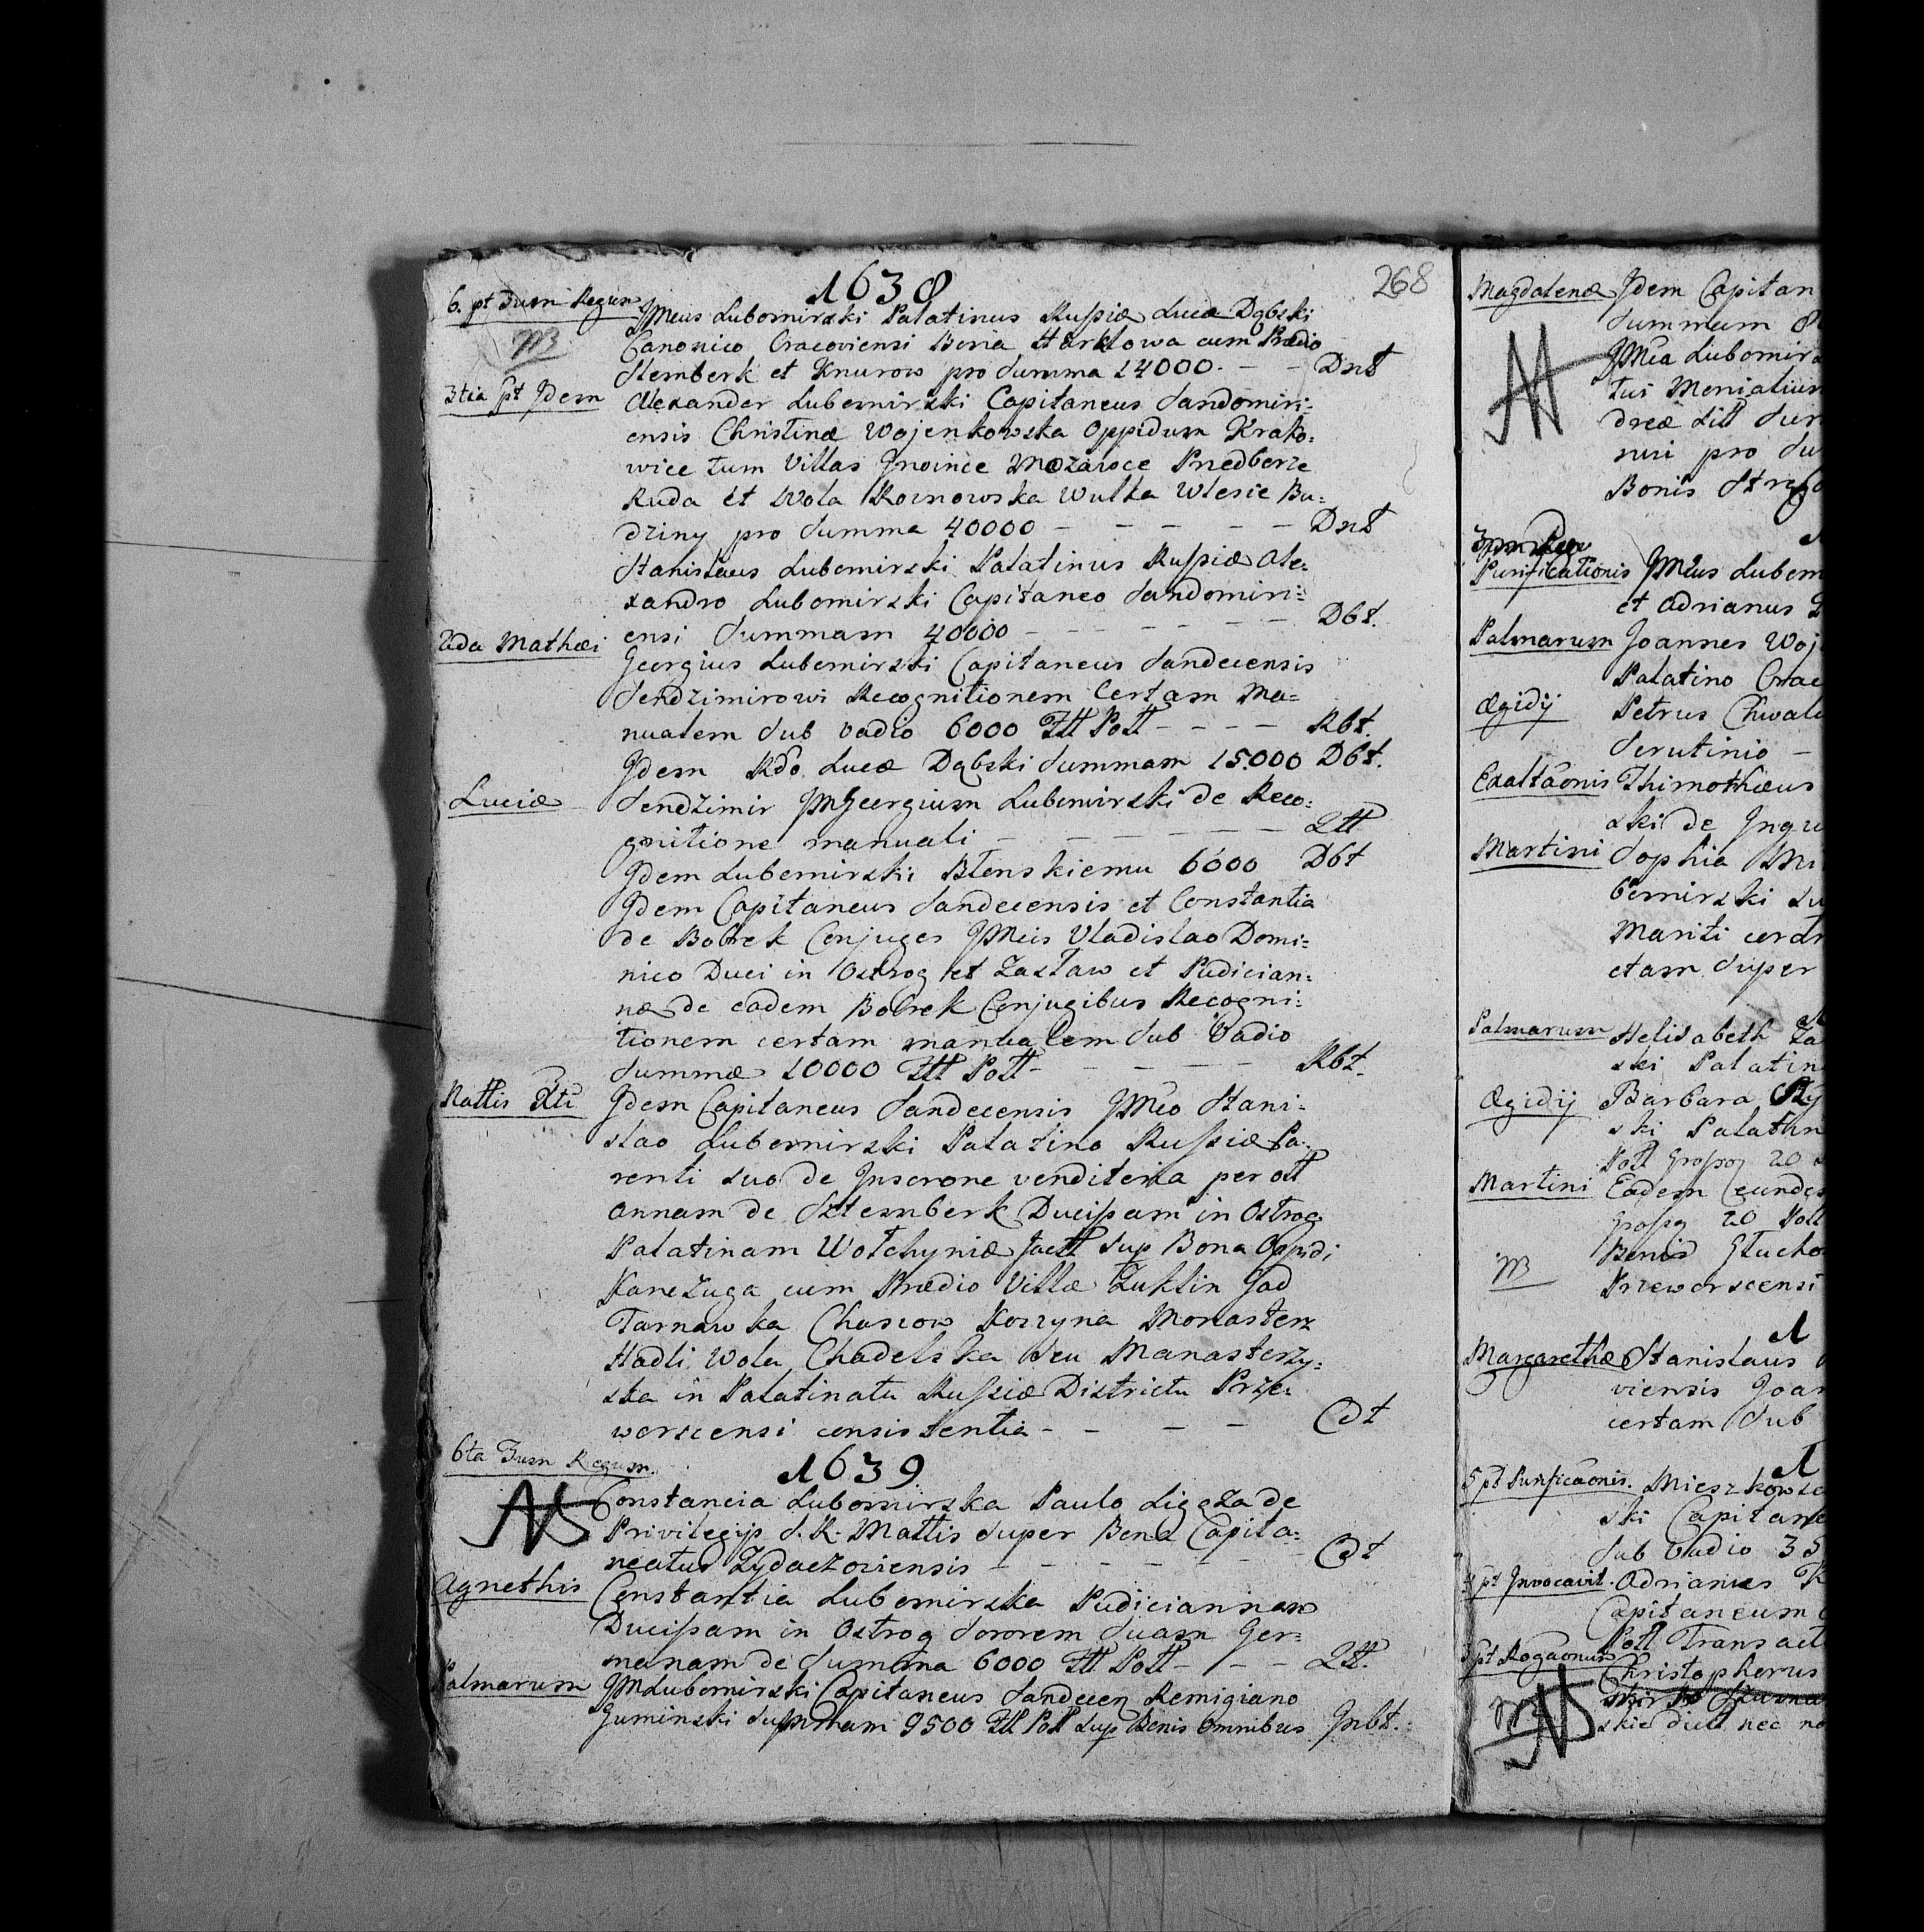 1638
268
6. pt Trium Regum JMcus Lubomirski Palatinus Russiæ Lucæ Dąbski
NB Canonico Cracoviensi Bona Harklowa cum Prædio
Stemberk et Knurow pro Summa 14000. - - Dnt
3tia pt Idem Alexander Lubomirski Capitaneus Sandomiri=
ensis Christinæ Wojenkowska Oppidum Krako=
wice tum Villas Gnoince Mozawce Przedborze
Ruda et Wola Rownowska Wulka Wlesie Bu=
dziny pro Summa 40000 - - - - - Dnt
Stanislaus Lubomirski Palatinus Russiæ Ale=
xandro Lubomirski Capitaneo Sandomiri=
ensi Summam 40000 - - - - - - Dbt.
2da Mathæi Georgius Lubomirski Capitaneus Sandecensis
Sendzimirowi Recognitionem Certam Ma=
nualem Sub vadio 6000 Ztt Poll - - - - Rbt.
Idem Rdo Lucæ Dąbski Summam 15.000 Dbt.
Luciæ Sendzimir JM Georgium Lubomirski de Reco=
gnitione manuali - - - - - - Qtt
Idem Lubomirski Błenskiemu 6000 Dbt
Idem Capitaneus Sandecensis et Constantia
de Bobrek Conjuges JMcis Vladislao Domi=
nico Duci in Ostrog et Zasław et Pudician=
næ de eadem Bobrek Conjugibus Recogni=
tionem certam manualem Sub Vadio
Summæ 10000 Ztt Poll - - - - - Rbt.
Nattis Xti Idem Capitaneus Sandecensis JMco Stani=
slao Lubomirski Palatino Russiæ Pa=
renti suo de Inscrone venditoria per olt
Annam de Sztemberk Ducissam in Ostrog
Palatinam Wołchyniæ fact sup Bona Oppidi
Kanczuga cum Prædio Villæ Zuklin Gad
Tarnawka Chascow Korzyna Monasterz
Hadli Wola Chadelska seu Manasterzy=
ska in Palatinatu Russiæ Districtu Prze=
worscensi consistentia - - - - Cdt
1639
6ta Trium Regum. Constancia Lubomirska Paulo Ligęza de
NB Privilegijs S. R. Mattis super Bona Capita=
neatus Zydaczoviensis - - - - - - Cdt
Agnethis Constantia Lubomirska Pudiciannam
Ducissam in Ostrog Sororem Suam Ger=
manam de Summa 6000 Ztt Poll - - - Qtt.
Palmarum JM Lubomirski Capitaneus Sandecen Remigiano
Guminski Summam 9500 Ztt Poll Sup Bonis Omnibus Inbt.
Magdalenæ Idem Capitan
Summam
JMca Lubomirs
tus Moniatium
dreæ Litt
niri pro Su
Bonis
Purificationis JMcus Lubom
et Adrianus
Palmarum Joannes Woj
Palatino Crac
Ægidij Petrus Chwal
Scrutinio -
Exaltaonis Thimothæus
ski de Ingre
Martini Sophia
bomirski su
Mariti
etam Super
Palmarum Helisabeth Za
ski Palatin
Ægidij Barbara
ski Palatin
Poll Grossor 20
Martini Eadem eundem
Grossor 20 Poll
NB Bonis Głucho
Przeworscensi
Margarethæ Stanislaus
viensis Joan
certam Sub
5 pt Purificaonis. Mieszkowsc
ski Capitane
Sub Vadio 35
4 pt Invocavit. Adrianus K
Capitaneum
Poll Transact
3 pt Rogaonum Christopherus
NB skie dict nec no